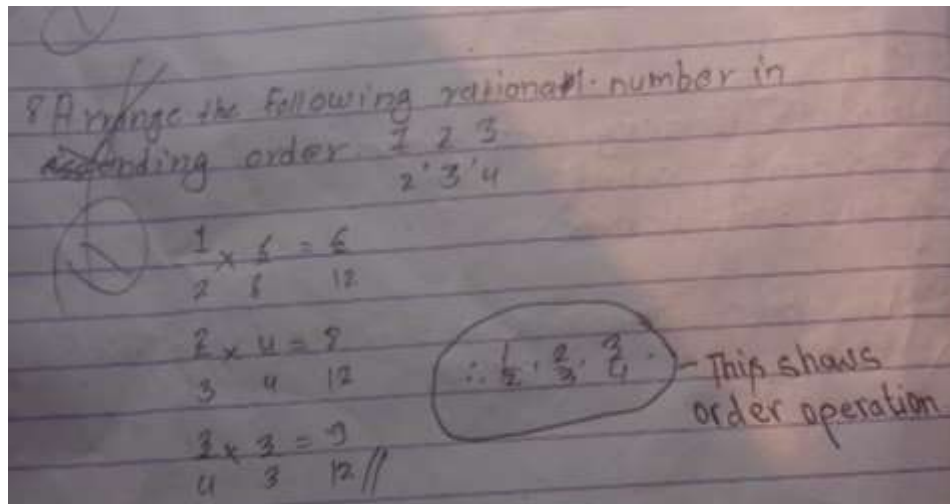 8 Arrange the following rational number in
ascending order. 1/2, 2/3, 3/4
1/2 × 6/6 = 6/12
2/3 × 4/4 = 8/12
∴ 1/2, 2/3, 3/4. - This shows
order operation
3/4 × 3/3 = 9/12 //